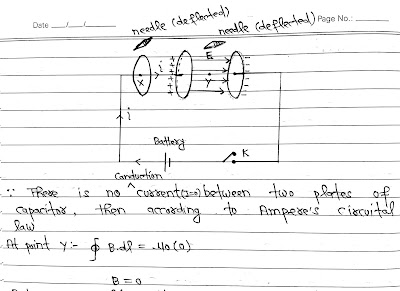 Date __/__/__ Page No.: ______
needle (deflected)
needle (deflected)
x i E Y
i
Battery
K
Conduction
∵ There is no ^ current (I=0) between two plates of
capacitor, then according to Ampere's circuital
law
At point Y:- ∮ B.dl = μ0 (0)
B = 0